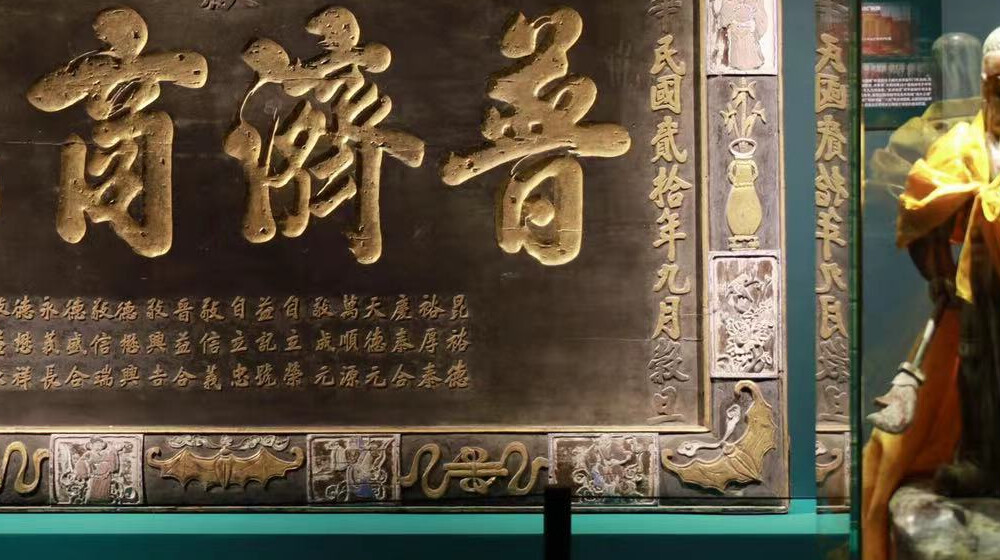 華民國貳拾年九月穀旦
普濟商
昆裕德
裕厚泰
慶泰合
天德元
萬順源
敬成元
自立榮
益記號
自立忠
敬信義
晉益合
敬興吉
德懋興
敬信瑞
德盛合
永義長
德懋祥
民國貳拾年九月穀旦